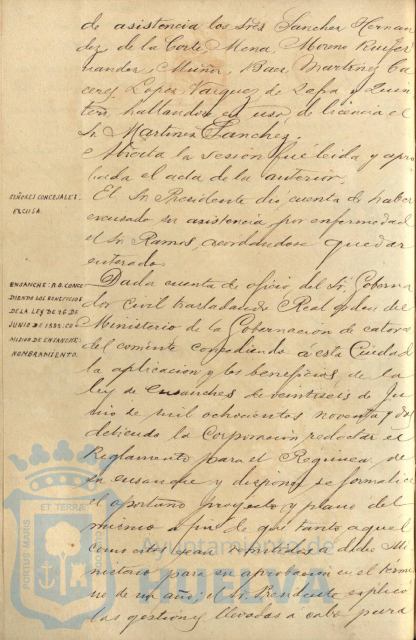 de asistencia los Sres Sanchez Hernan
dez, de la Corte, Mena, Moreno,
nandez, Muñoz, Baez, Martinez Ca
ceres, Lopez, Vazquez de Zafra y Quin
tero, hallandose en uso de licencia el
Sr Martinez Sanchez.
Abierta la sesión fué leida y apro
bada el acta de la anterior.
SEÑORES CONCEJALES.
EXCUSA.
El Sr Presidente dió cuenta de haber
excusado su asistencia por enfermedad
el Sr Ramos, acordandose quedar
enterado.
ENSANCHE: R.O. CONCE
DIENDO LOS BENEFICIOS
DE LA LEY DE 26 DE
JUNIO DE 1892. CO
MISION DE ENSANCHE:
NOMBRAMIENTO.
Dada cuenta de oficio del Sr. Goberna
dor Civil trasladando Real orden del
Ministerio de la Gobernación de catorce
del corriente concediendo á esta Ciudad
la aplicación de los beneficios de la
ley de Ensanches de veintiseis de Ju
nio de mil ochocientos noventa y dos
debiendo la Corporación redactar el
Reglamento para el Regimen de
su ensanche y disponer se formalice
el oportuno proyecto y plano del
mismo a fin de que tanto aquel
como estos sean remitidos a dicho Mi
nisterio para su aprobación en el térmi
no de un año; el Sr. Presidente explicó
las gestiones llevadas á cabo para
PORTUS MARIS ET TERRÆ
Ayuntamiento de
HUELVA